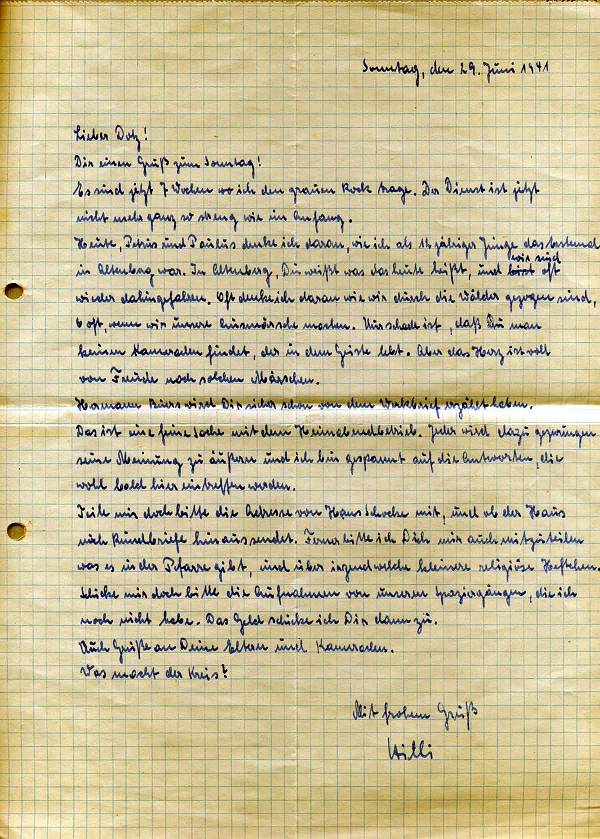 Sonntag, den 29. Juni 1941
Lieber Dotz!
Dir einen Gruß zum Sonntag!
Es sind jetzt 7 Wochen wo ich den grauen Rock trage. Der Dienst ist jetzt
nicht mehr ganz so streng wie im Anfang.
Heute, Petrus und Paulus denke ich daran, wie ich als jähriger Junge das erstemal
in Altenberg war. In Altenberg, Du weißt was das heute heißt, und wir sind oft
wieder dahingefahren. Oft denke ich daran wie wir durch die Wälder gezogen sind,
so oft, wenn wir unsere Ausmärsche machen. Nur schade ist, daß man
keinen Kameraden findet, der in dem Geiste lebt. Aber das Herz ist voll
von Freude nach solchen Märschen.
Hermann wird Dir sicher schon von dem Werkbrief erzählt haben.
Das ist eine feine Sache mit dem Heimabendbetrieb. Jeder wird dazu gezwungen
seine Meinung zu äußern und ich bin gespannt auf die Antworten, die
wohl bald hier eintreffen werden.
Teile mir doch bitte die Adresse von Hans mit, und ob der Haus
noch Rundbriefe hinaussendet. Ferner bitte ich Dich mir auch mitzuteilen
was es in der Pfarre gibt, und über irgendwelche kleinere religiöse Heftchen.
Schicke mir doch bitte die Aufnahmen von unseren Spaziergängen, die ich
noch nicht habe. Das Geld schicke ich Dir dann zu.
Auch Grüße an Deine Eltern und Kameraden.
Was macht der Kreis?
Mit frohem Gruß
Willi